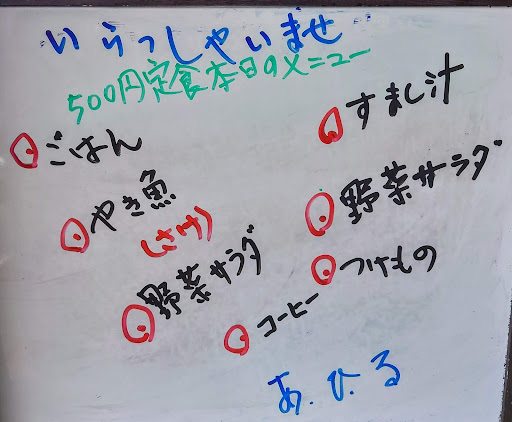 いらっしゃいませ
500円定食本日のメニュー
ごはん
やき魚
(さけ)
野菜サラダ
コーヒー
すまし汁
野菜サラダ
つけもの
あ.ひ.る